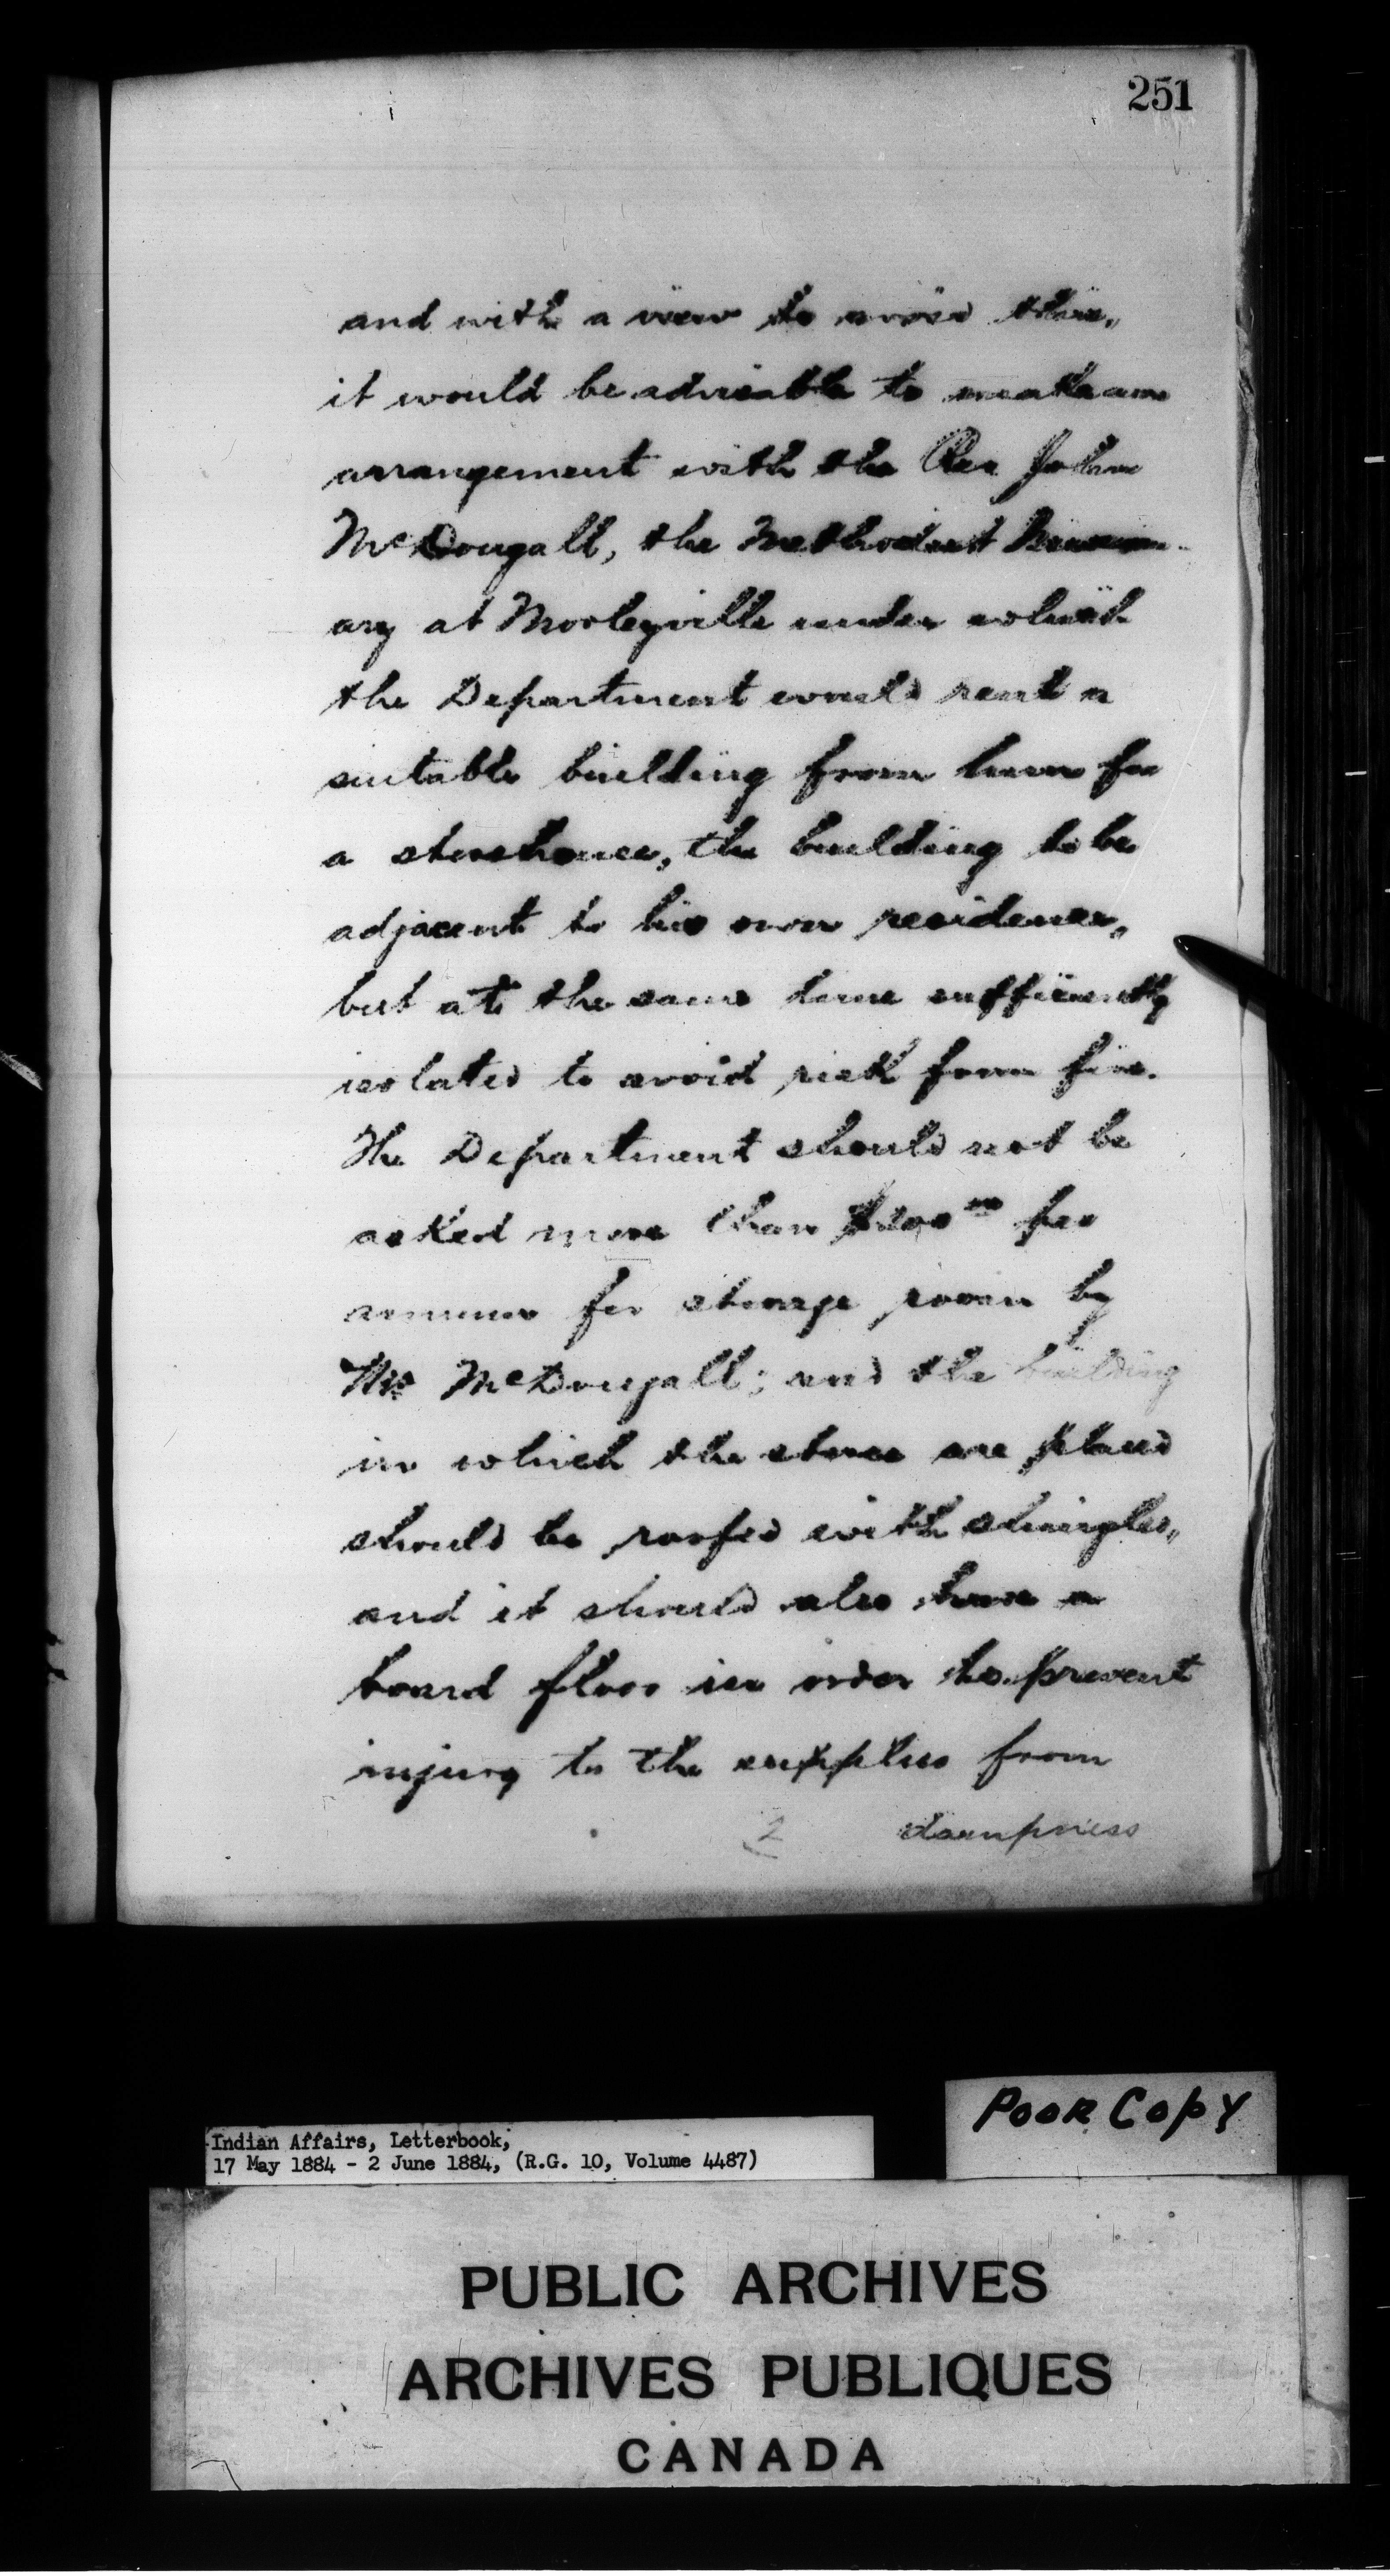 251
and with a view to avoid this,
it would be advisable to make an
arrangement with the Rev John
McDougall, the Methodist Mission-
ary at Morleyville under which
the Department would rent a
suitable building from him for
a storehouse, the building to be
adjacent to his own residence,
but at the same time sufficiently
isolated to avoid risk from fire.
The Department should not be
asked more than per
annum for storage room by
Mr McDougall; and the building
in which the stores are placed
should be roofed with shingles,
and it should also have a
board floor in order to prevent
injury to the supplies from
2 dampness
Poor Copy
Indian Affairs, Letterbook,
17 May 1884 - 2 June 1884, (R.G. 10, Volume 4487)
PUBLIC ARCHIVES
ARCHIVES PUBLIQUES
CANADA